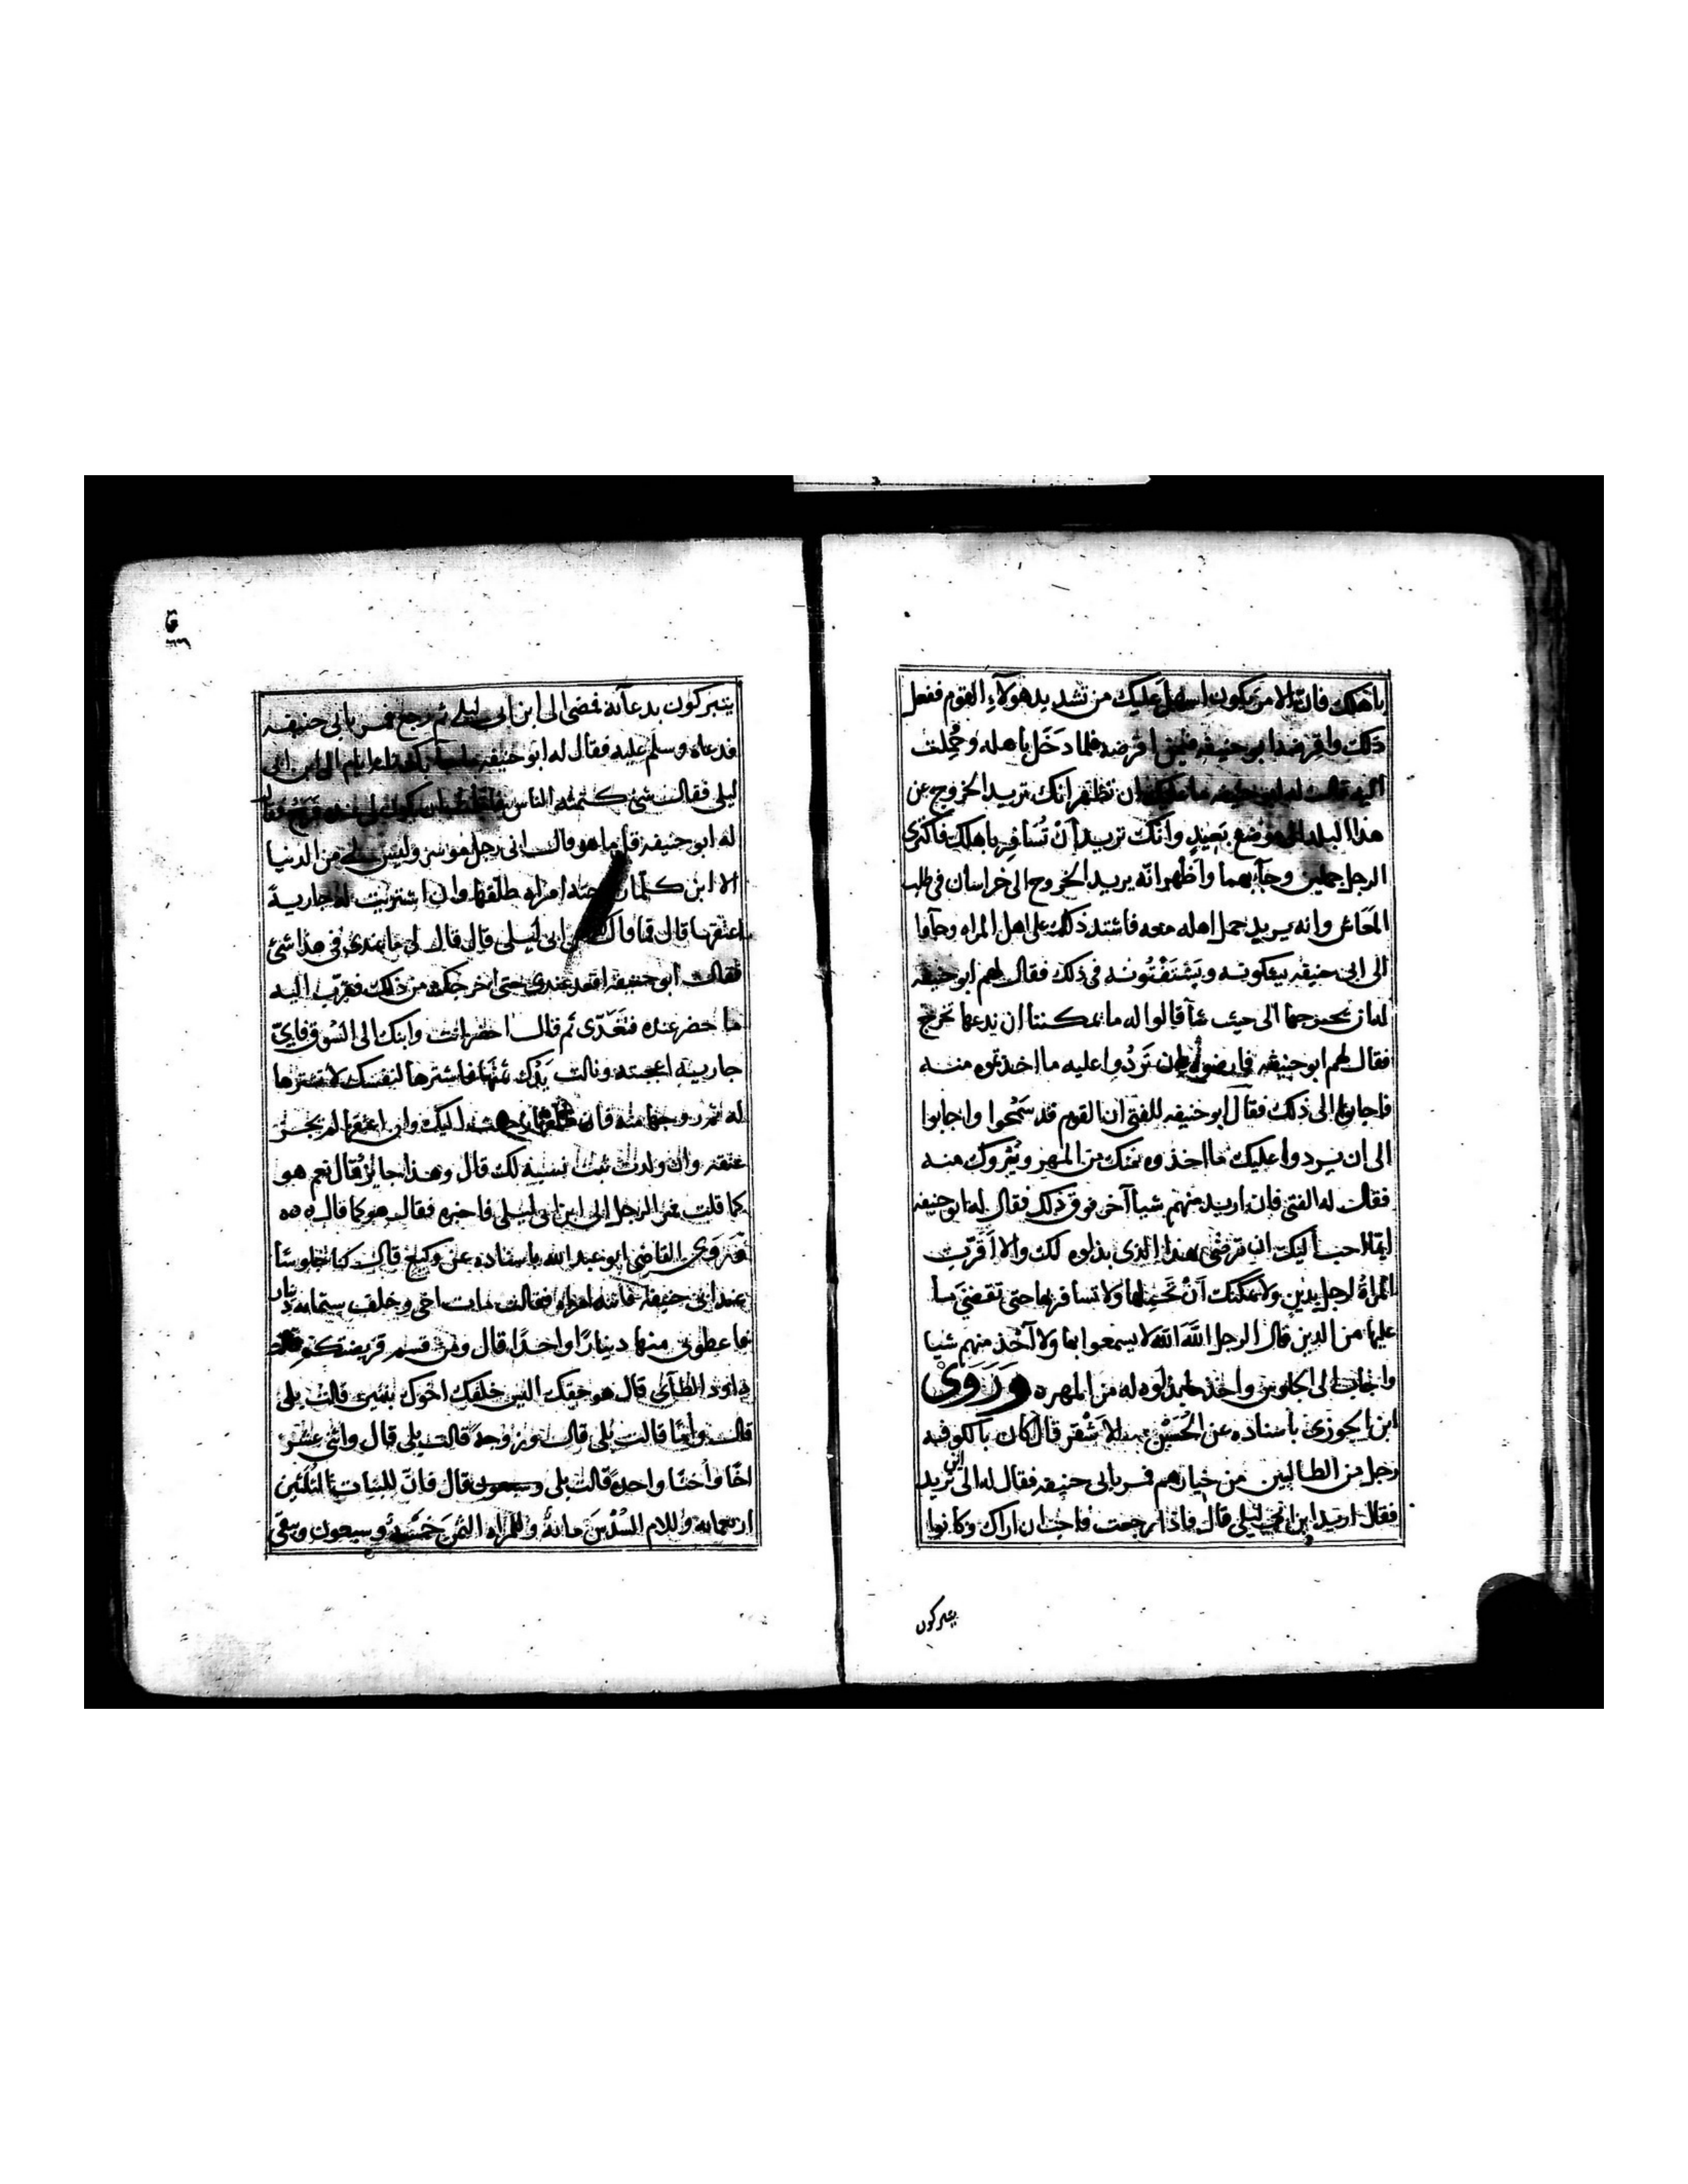 باهلك فان الامر يكون اسهل عليك من تشديد هولآء القوم ففعل
ذلك واقرضه ابو حنيفه فيمن اقرضه فلما دَخَل باهله وحُمِلت
اليه قال له ابو حنيفه ما عليك ان تظهر انك تريد الخروج عن
هذا البلد الى موضع بَعيدٍ وانّك تريد أنْ تُسَافِر باهلك فاكترى
الرجل جملين وجآء بهما وأظهر انّه يريد الخروج الى خراسان فى طلب
المَعَاش وانه يريد حمل اهله معه فاشتد ذلك على اهل المراه وجآوا
الى ابى حنيفه يشكونه ويَسْتَفْتُونه فى ذلك فقال لهم ابو حنيفه
له ان يخرجها الى حيث شآ قالوا له ما يمكننا ان يدعها تخرج
فقال لهم ابو حنيفه فارضوه بان تَرُدُوا عليه ما اخذتموه منه
فاجابوا الى ذلك فقال ابو حنيفه للفتى ان القوم قد سَمَحوا واجابوا
الى ان يردوا عليك ما اخذوه منك من المهر ويُبْروك منه
فقال له الفتى فان اريد منهم شيا آخر فوق ذلك فقال له ابو حنيفه
ايّما احب اليك ان ترضى بهذا الذى بذلوه لك والا أَقَرّت
المرأةُ لرجل بدين ولا يمكنك أنْ تَحملها ولا تسافر بها حتى تقضىَ ما
عليها من الدين قال الرجل اللهَ اللهَ لا يسمعوا بها ولا آخذ منهم شيا
واجاب الى الجلوس واخذ ما بذلوه له من المهر ه وَرَوَىْ
ابن الجوزى باسناده عن الحُسَيْن الاشْقر قال كان بالكوفه
رجل من الطالبين من خيارهم فمر بابى حنيفه فقال له الى اين تريد
فقال اريد ابن ابى ليلى قال فاذا رجعت فاحب ان اراك وكانوا
يتبركون
يتبركون بدعآئه فمضى الى ابن ابى ليلى ثم رجع فمر بابى حنيفه
فدعاه وسلم عليه فقال له ابو حنيفه ايام الى ابن ابى
ليلى فقال شئ كتمته الناس فرج فقال
له ابو حنيفه قل ما هو قال انى رجل موسر وليس لى من الدنيا
الا ابن كلما امراه طلقها وان اشتريت له جارية
اعتقها قال فما قال ابن ابى ليلى قال قال لى ما عندى فى هذا شئ
فقال ابو حنيفه اقعد عندى حتى اخرجك من ذلك فقرّب اليه
ما حضر عنده فتغدّى ثم قال احضر انت وابنك الى السُوق فاىّ
جارية اعجبته ونالت يَدُك ثمنها فاشترها لنفسك لا تشترها
له ثم زوجها منه فان طلقها رجعت اليك وان اعتقها لم يجز
عتقه وان ولدت ثبت نسبه لك قال وهذا جايز قال نعم هو
كما قلت فمر الرجل الى ابن ابى ليلى فاخبره فقال هو كما قال ه ه
وَرَوَى القاضى ابو عبد الله باسناده عن وكيع قال كنا جلوسًا
عند ابى حنيفه فاتته امراه فقالت مات اخى وخلف ستمايه دينار
فاعطونى منها دينارًا واحدًا قال ومن قسم فريضتكم قالت
داود الطآئى قال هو حقك اليس خلّف اخوك بنتين قالت بلى
قال وامًّا قالت بلى قال وزوجةً قالت بلى قال واثنى عشر
اخًا وأختًا واحدةً قالت بلى قال فان للبنات الثلثين
اربعمايه وللام السُدْسَ مائةً وللمراه الثمنَ خمسةً وسبعون ويبقى